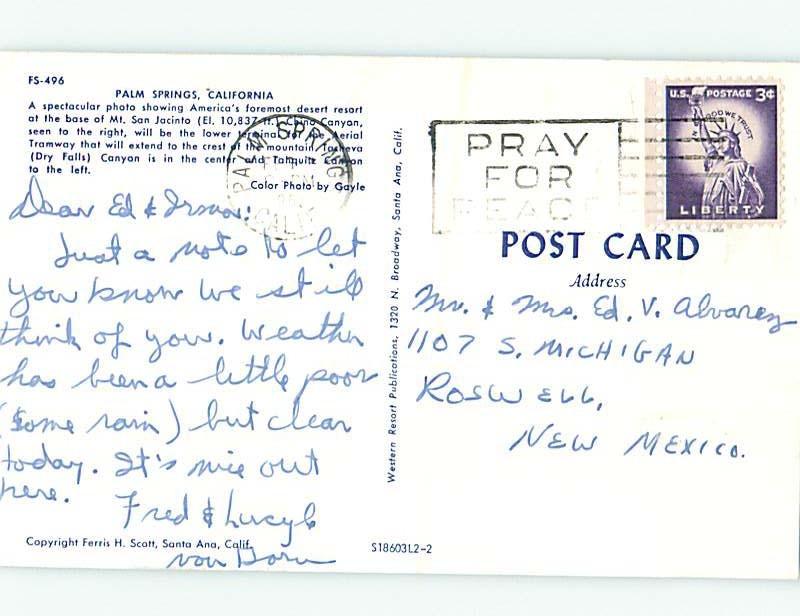 FS-496
PALM SPRINGS, CALIFORNIA
A spectacular photo showing America's foremost desert resort
at the base of Mt. San Jacinto (El. 10,837 ft.) Chino Canyon,
seen to the right, will be the lower terminal of the Aerial
Tramway that will extend to the crest of the mountain. Tacheva
(Dry Falls) Canyon is in the center and Tahquitz Canyon
to the left.
Color Photo by Gayle
Dear Ed & Irma:
Just a note to let
you know we still
think of you. Weather
has been a little poor
(some rain) but clear
today. It's nice out
here.
Fred & Lucyle
von Dorn
Copyright Ferris H. Scott, Santa Ana, Calif.
S18603L2-2
Western Resort Publications, 1320 N. Broadway, Santa Ana, Calif.
PALM SPRINGS
CALIF
PRAY
FOR
PEACE
U.S. POSTAGE 3¢
IN GOD WE TRUST
LIBERTY
POST CARD
Address
Mr. & Mrs. Ed. V. Alvarez
1107 S. MICHIGAN
ROSWELL,
NEW MEXICO.